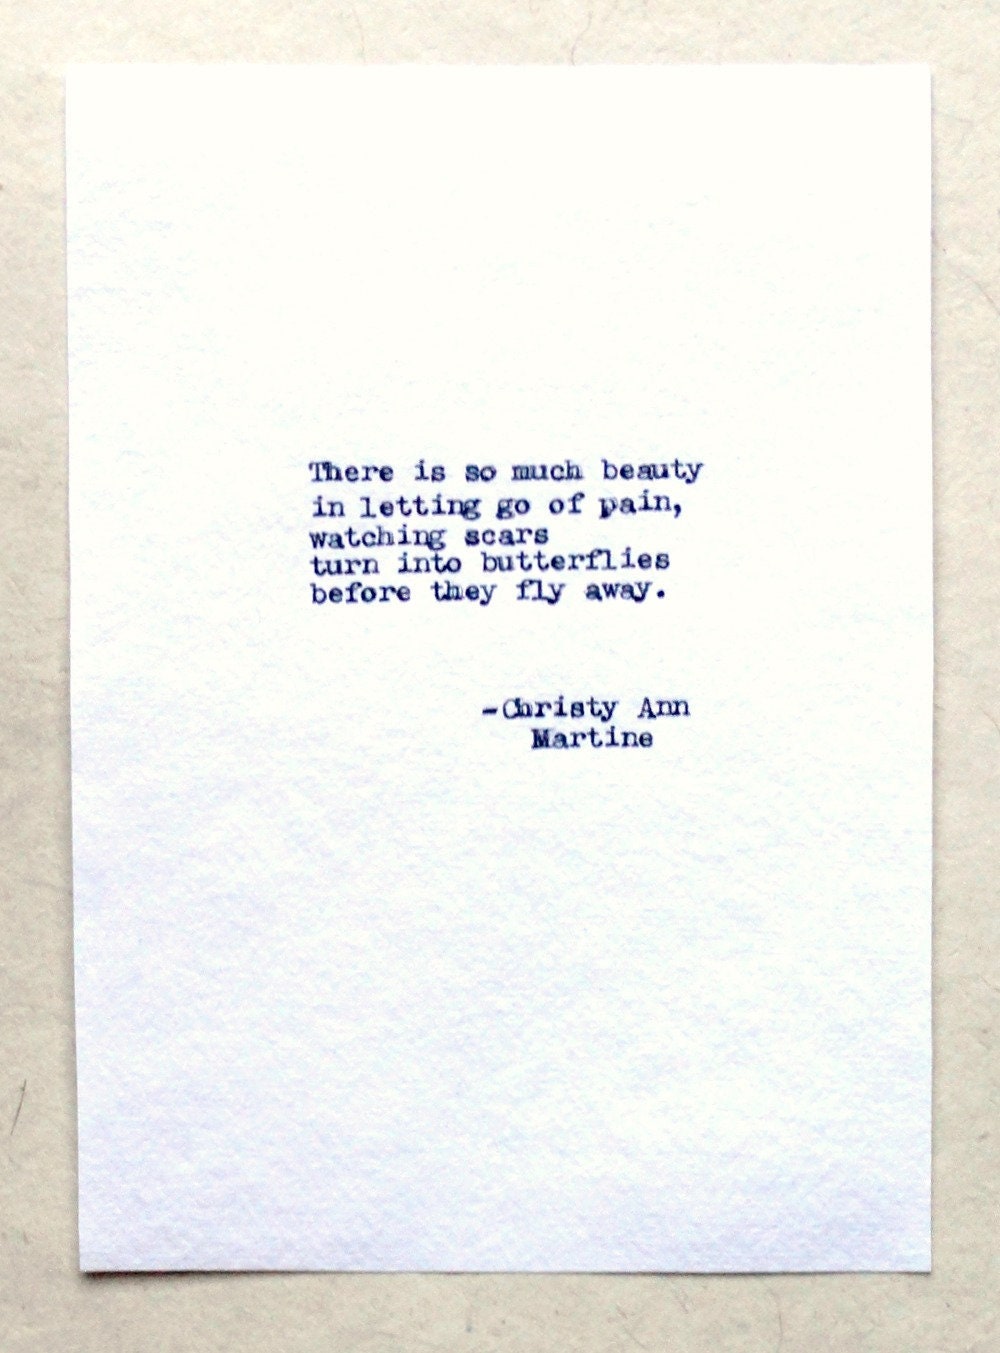 There is so much beauty
in letting go of pain,
watching scars
turn into butterflies
before they fly away.
-Christy Ann
Martine